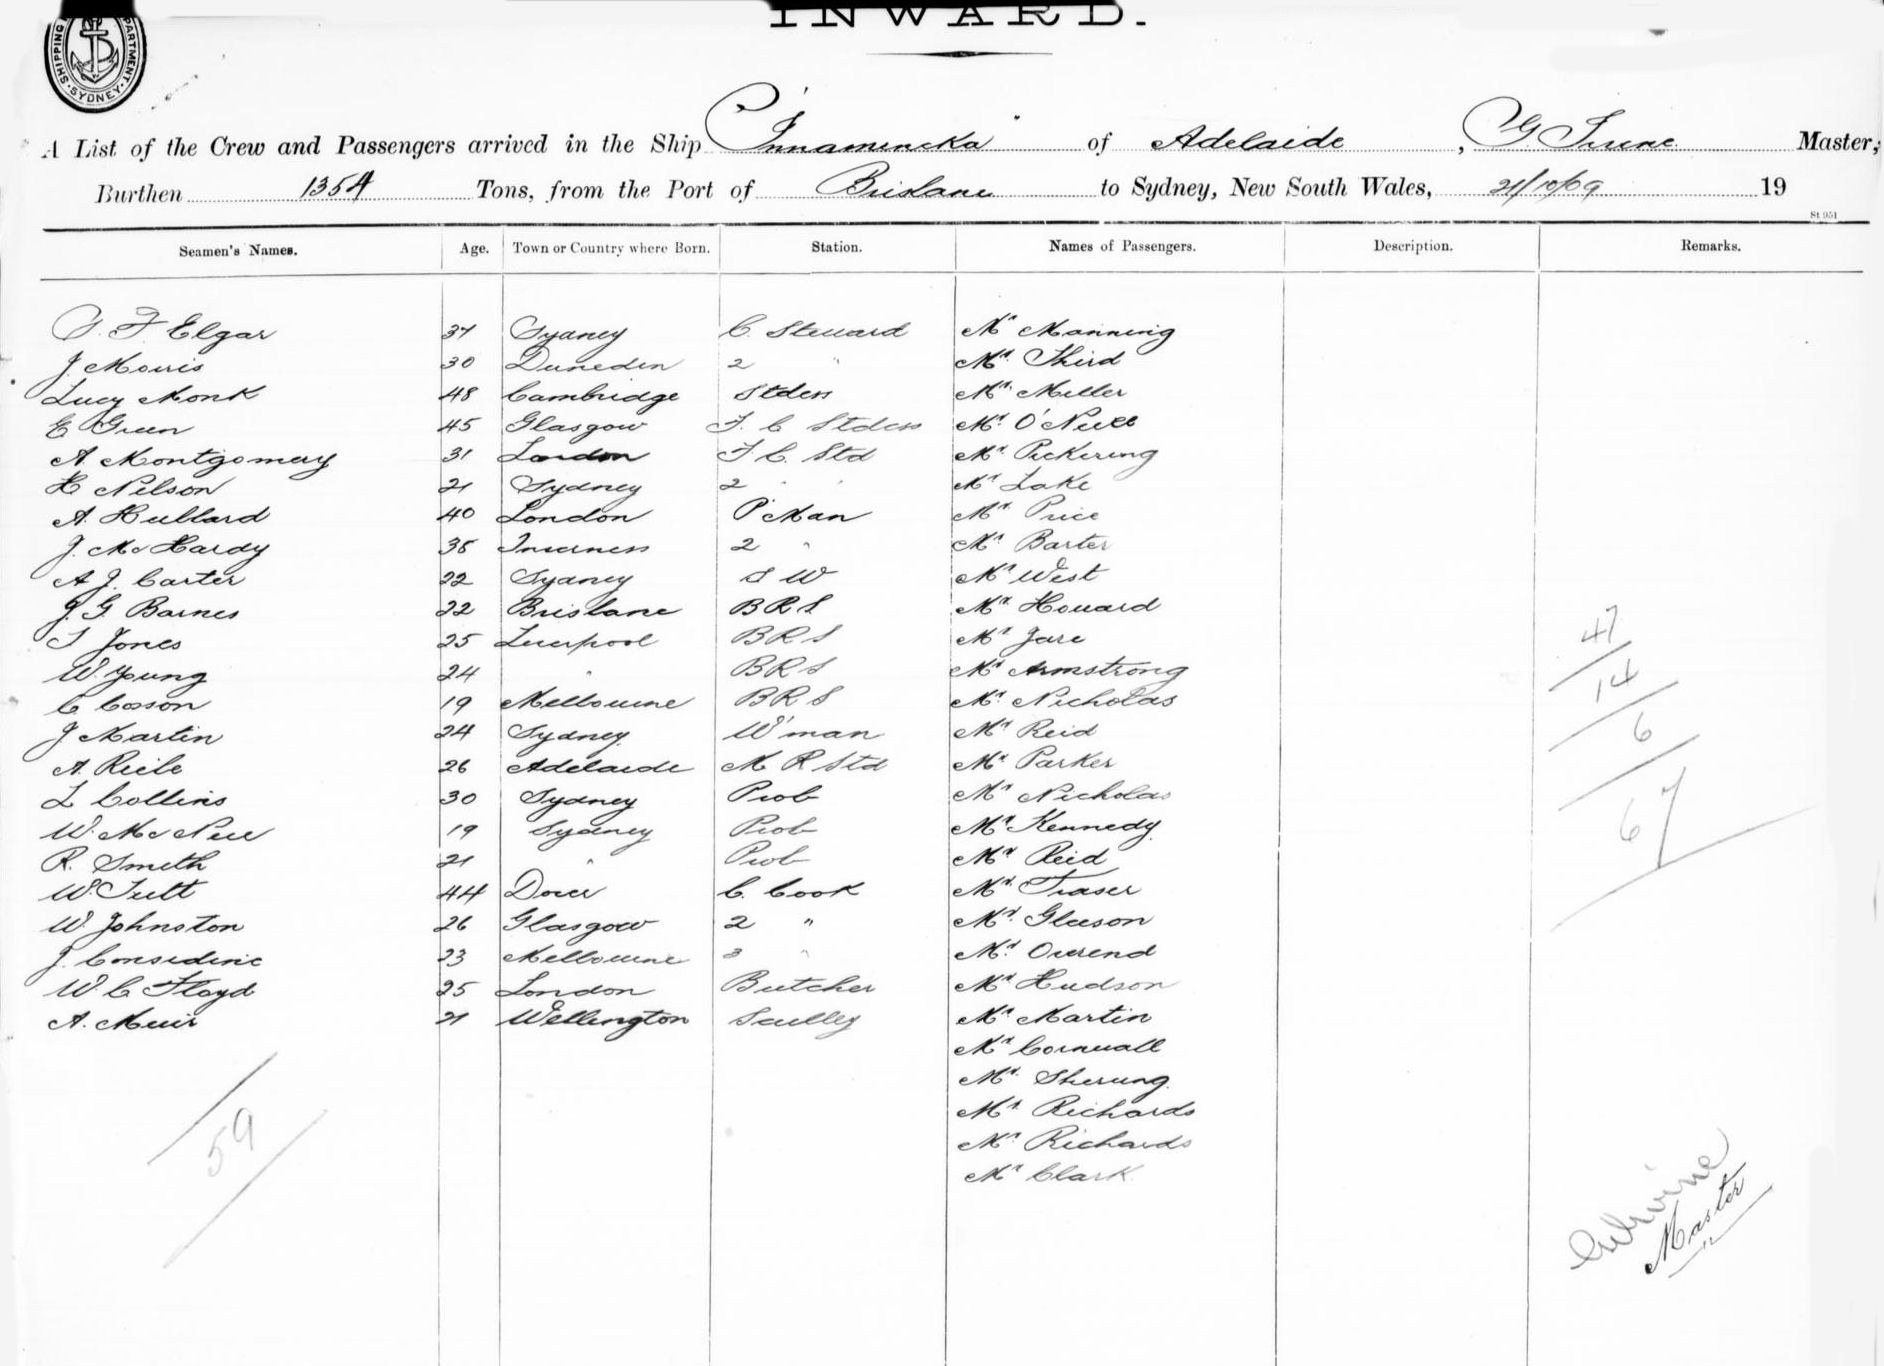 INWARD.
SHIPPING DEPARTMENT. SYDNEY.
A List of the Crew and Passengers arrived in the Ship "Innamincka" of Adelaide, Master;
Burthen 1354 Tons, from the Port of Brisbane to Sydney, New South Wales, 21/10/09 19
St 951
Seamen's Names. Age. Town or Country where Born. Station. Names of Passengers. Description. Remarks.
F. Elgar 37 Sydney C. Steward Mr Manning
J Morris 30 Dunedin 2 " Mr Third
Lucy Monk 48 Cambridge Stdess Mr Miller
E Green 45 Glasgow F. C Stdess Mr O'Neill
A Montgomery 31 London F C. Std Mr Pickering
H Nelson 21 Sydney 2 " " Mr Lake
A. Hullard 40 London P'Man Mr Price
J. Mc Hardy 38 Inverness 2 " Mr Barter
A J. Carter 22 Sydney S W Mr West
J. G Barnes 22 Brisbane B R S Mr Howard
T Jones 25 Liverpool B R S Mr
W. Young 24 " B R S Mr Armstrong
C Cosson 19 Melbourne B R S Mr Nicholas
J Martin 24 Sydney W'man Mr Reid
A. 26 Adelaide M R Std Mr Parker
L Collins 30 Sydney Prob Mr Nicholas
W. Mc Neil 19 Sydney Prob Mr Kennedy
R. Smith 21 " Prob Mr Reid
W. Tutt 44 Dover C. Cook Mr Fraser
W. Johnston 26 Glasgow 2 " Mr Gleeson
J. Considine 23 Melbourne 3 " Mr Overend
W. C Floyd 25 London Butcher Mr Hudson
A. Muir 21 Wellington Sculley Mr Martin
Mr Cornwall
Mr
Mr Richards
Mr Richards
Mr Clark
47
14
6
67
59
Master